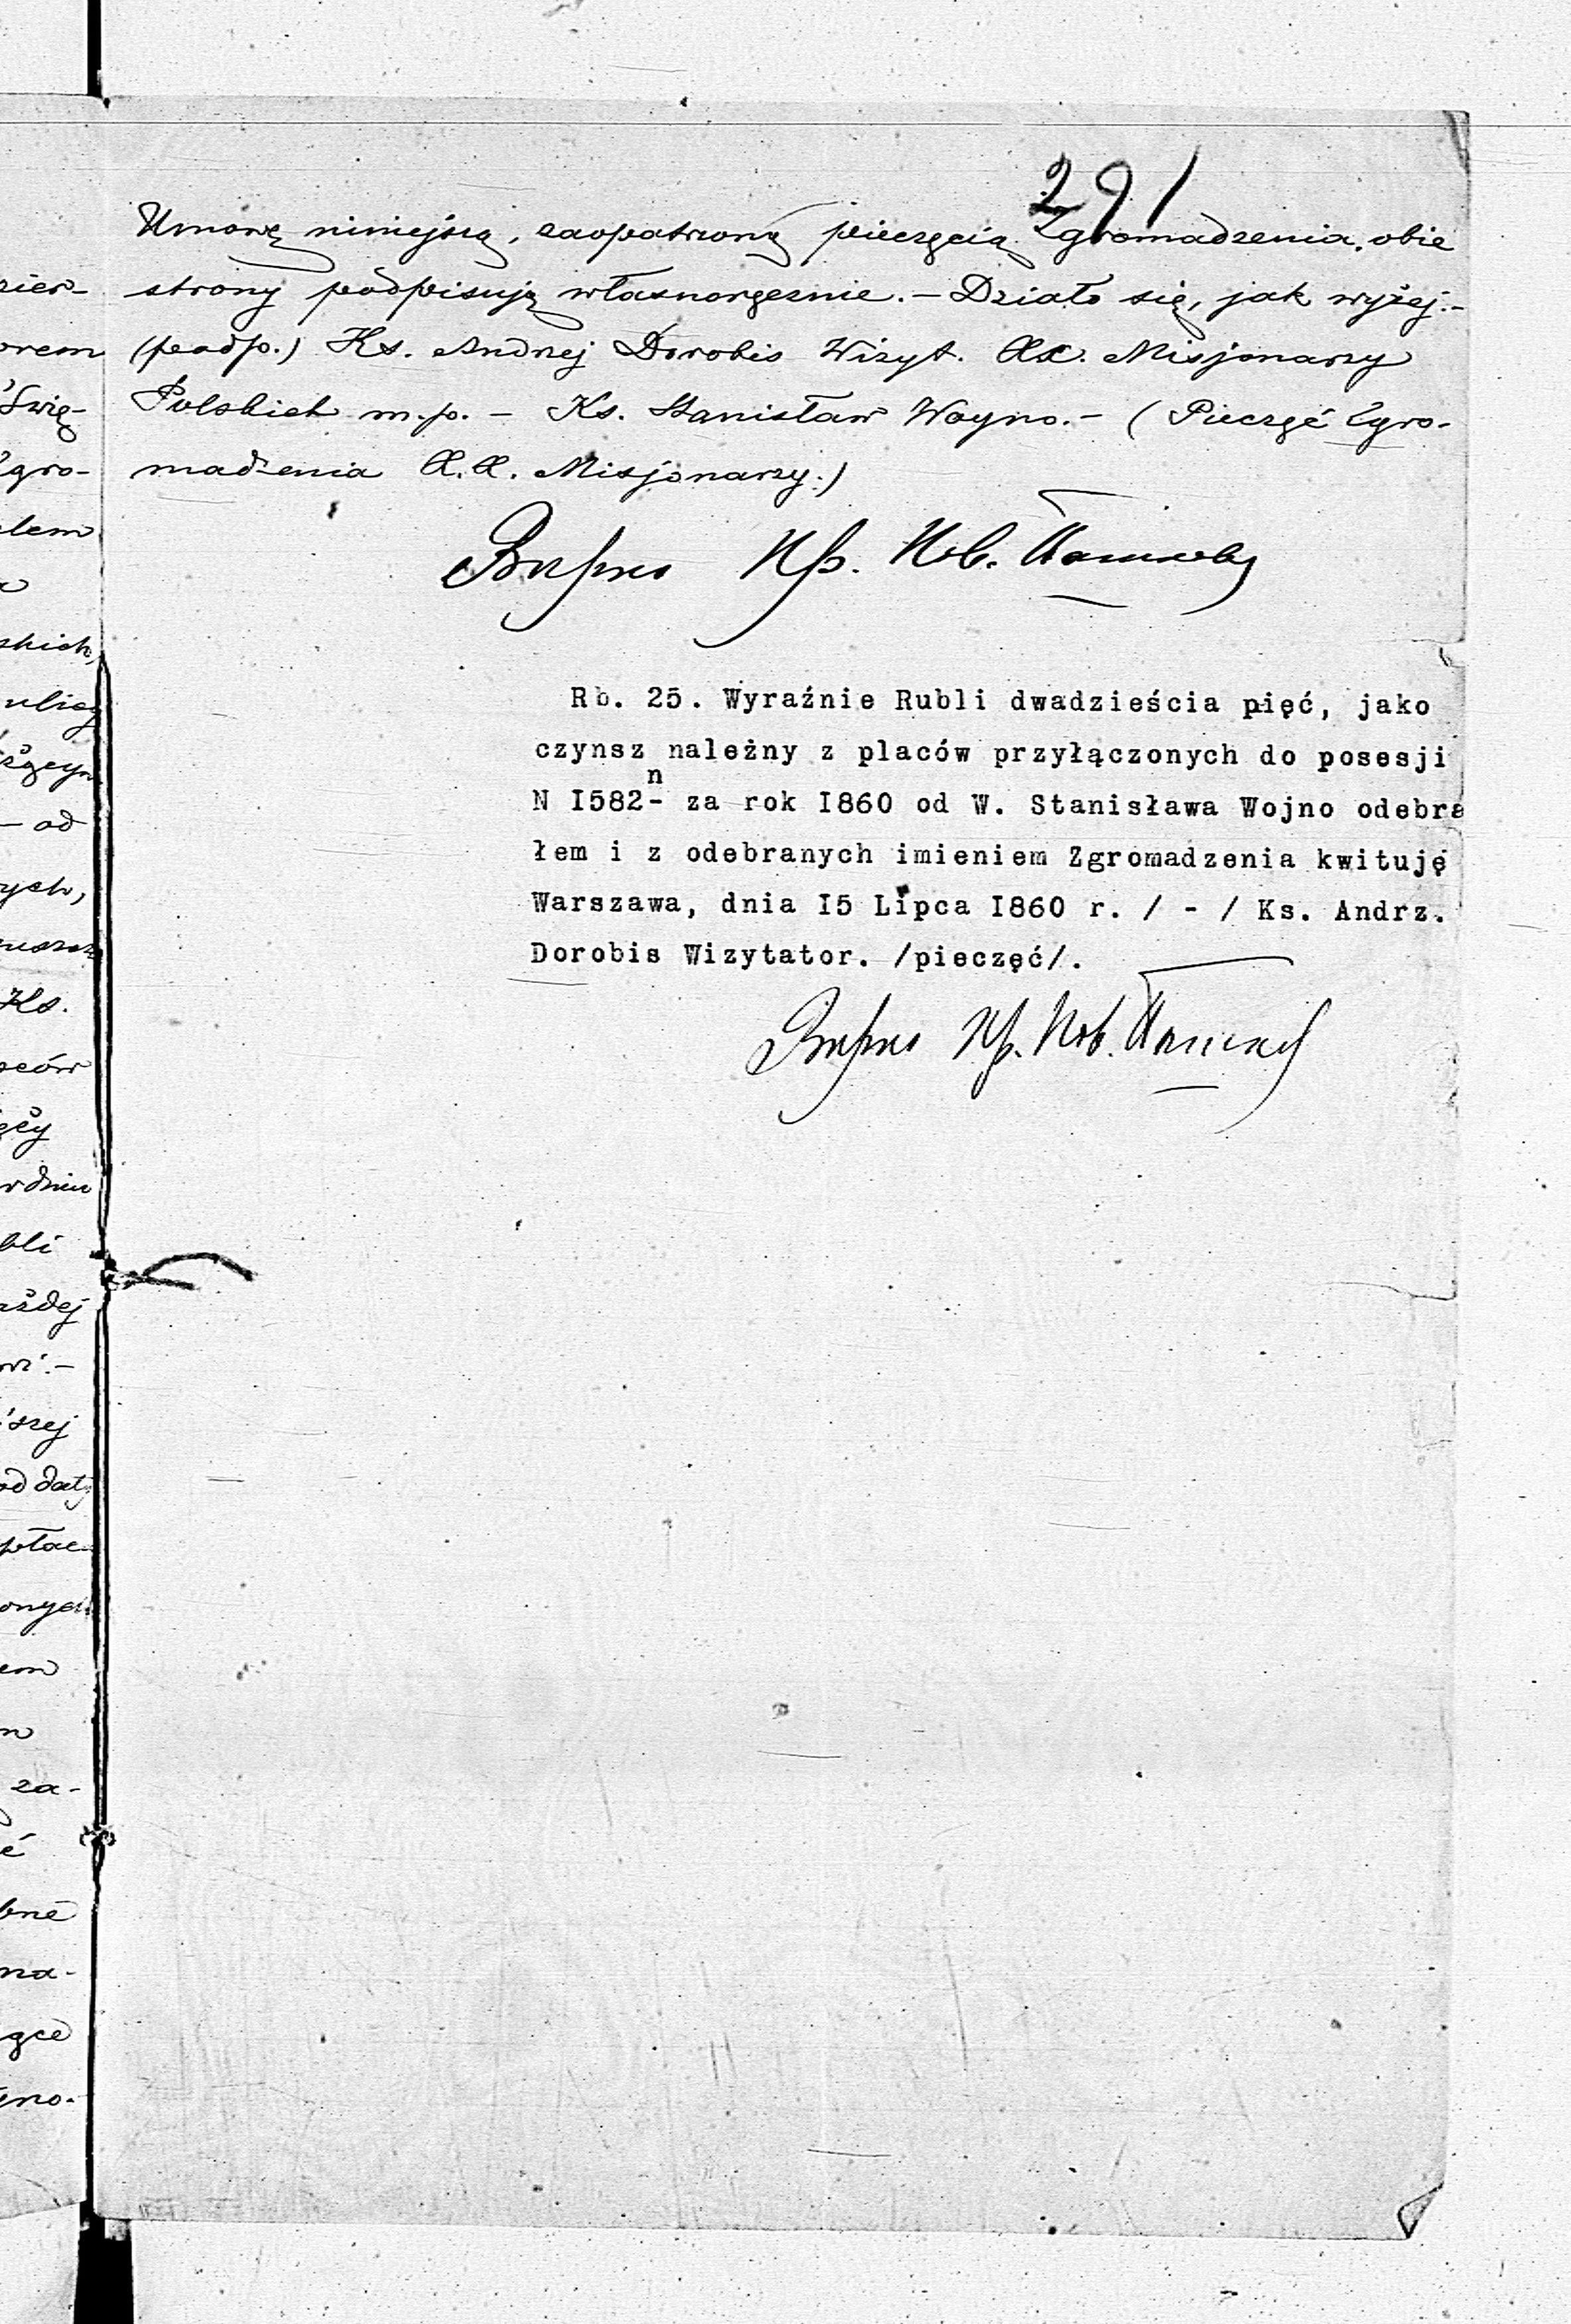 291
Umowę niniejszą, zaopatrzoną pieczęcią Zgromadzenia, obie
strony podpisują własnoręcznie. — Działo się, jak wyżej. —
(podp.) Ks. Andrzej Dorobis Wizyt. XX. Misjonarzy
Polskich m.p. — Ks. Stanisław Woyno. — (Pieczęć Zgro-
madzenia X.X. Misjonarzy.)
Rb. 25. Wyraźnie Rubli dwadzieścia pięć, jako
czynsz należny z placów przyłączonych do posesji
N I582-n za rok I860 od W. Stanisława Wojno odebra
łem i z odebranych imieniem Zgromadzenia kwituję
Warszawa, dnia I5 Lipca I860 r. / - / Ks. Andrz.
Dorobis Wizytator. /pieczęć/.
zier-
orem
Świę-
Zgro-
skich,
— od
ych,
Ks.
za-
na-